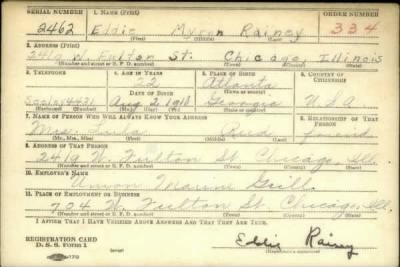 SERIAL NUMBER 1. NAME (Print) ORDER NUMBER
2462 Eddie Myron Rainey 334
(First) (Middle) (Last)
2. ADDRESS (Print)
2419 W. Fulton St. Chicago, Illinois
(Number and street or R. F. D. number) (Town) (County) (State)
3. TELEPHONE 4. AGE IN YEARS 5. PLACE OF BIRTH 6. COUNTRY OF CITIZENSHIP
22 Atlanta
DATE OF BIRTH (Town or county)
4431 Aug 2, 1918 Georgia U.S.A.
(Exchange) (Number) (Mo.) (Day) (Yr.) (State or country)
7. NAME OF PERSON WHO WILL ALWAYS KNOW YOUR ADDRESS 8. RELATIONSHIP OF THAT PERSON
Mrs. Lula Reid friend
(Mr., Mrs., Miss) (First) (Middle) (Last)
9. ADDRESS OF THAT PERSON
2419 W. Fulton St. Chicago, Ill.
(Number and street or R. F. D. number) (Town) (County) (State)
10. EMPLOYER'S NAME
Union Marine Grill
11. PLACE OF EMPLOYMENT OR BUSINESS
724 W. Fulton St. Chicago, Ill.
(Number and street or R. F. D. number) (Town) (County) (State)
I AFFIRM THAT I HAVE VERIFIED ABOVE ANSWERS AND THAT THEY ARE TRUE.
REGISTRATION CARD
D. S. S. Form 1 (over) Eddie Rainey